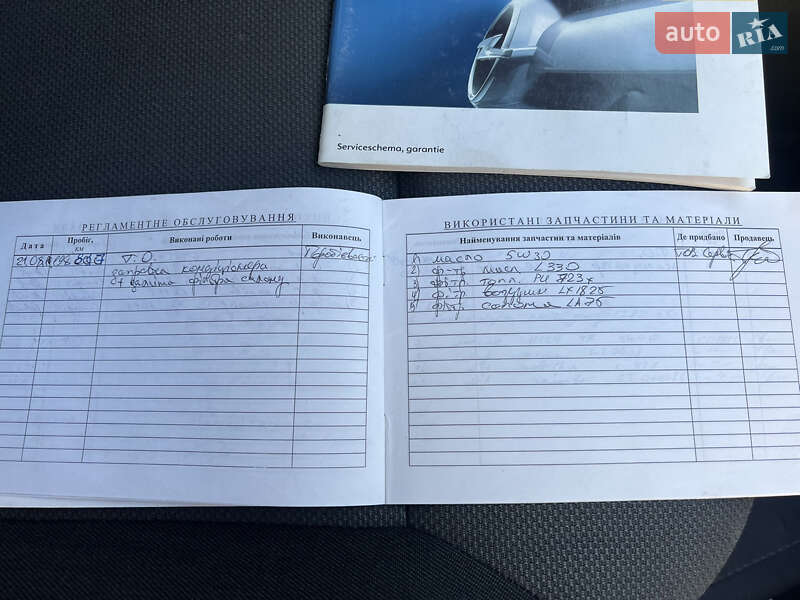 auto RIA
.com
Serviceschema, garantie
РЕГЛАМЕНТНЕ ОБСЛУГОВУВАННЯ
Дата Пробіг, км Виконані роботи Виконавець
Т.О.
заправка кондиціонера
заміна фільтра салону
ВИКОРИСТАНІ ЗАПЧАСТИНИ ТА МАТЕРІАЛИ
Найменування запчастини та матеріалів Де придбано Продавець
1) масло 5W30
2) ф-тр масл L330
3) ф-тр топл. PU 723x
4) ф. тр. воздушн LX1825
5) ф. тр. салона LA75